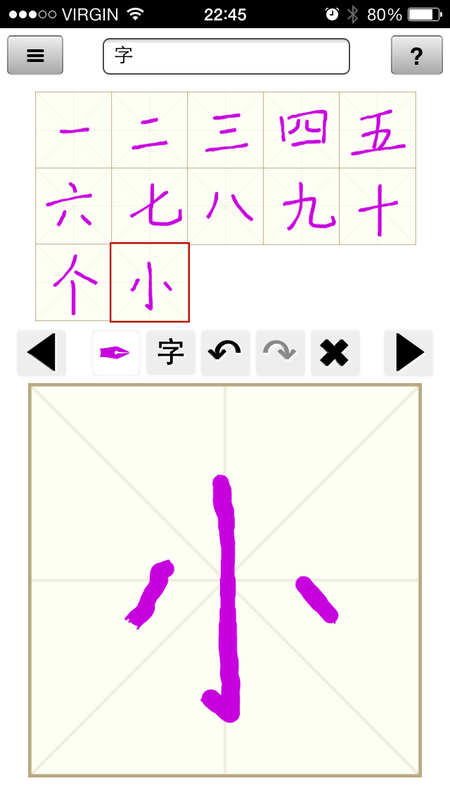 VIRGIN 22:45 80%
字 ?
一 二 三 四 五
六 七 八 九 十
个 小
字
小